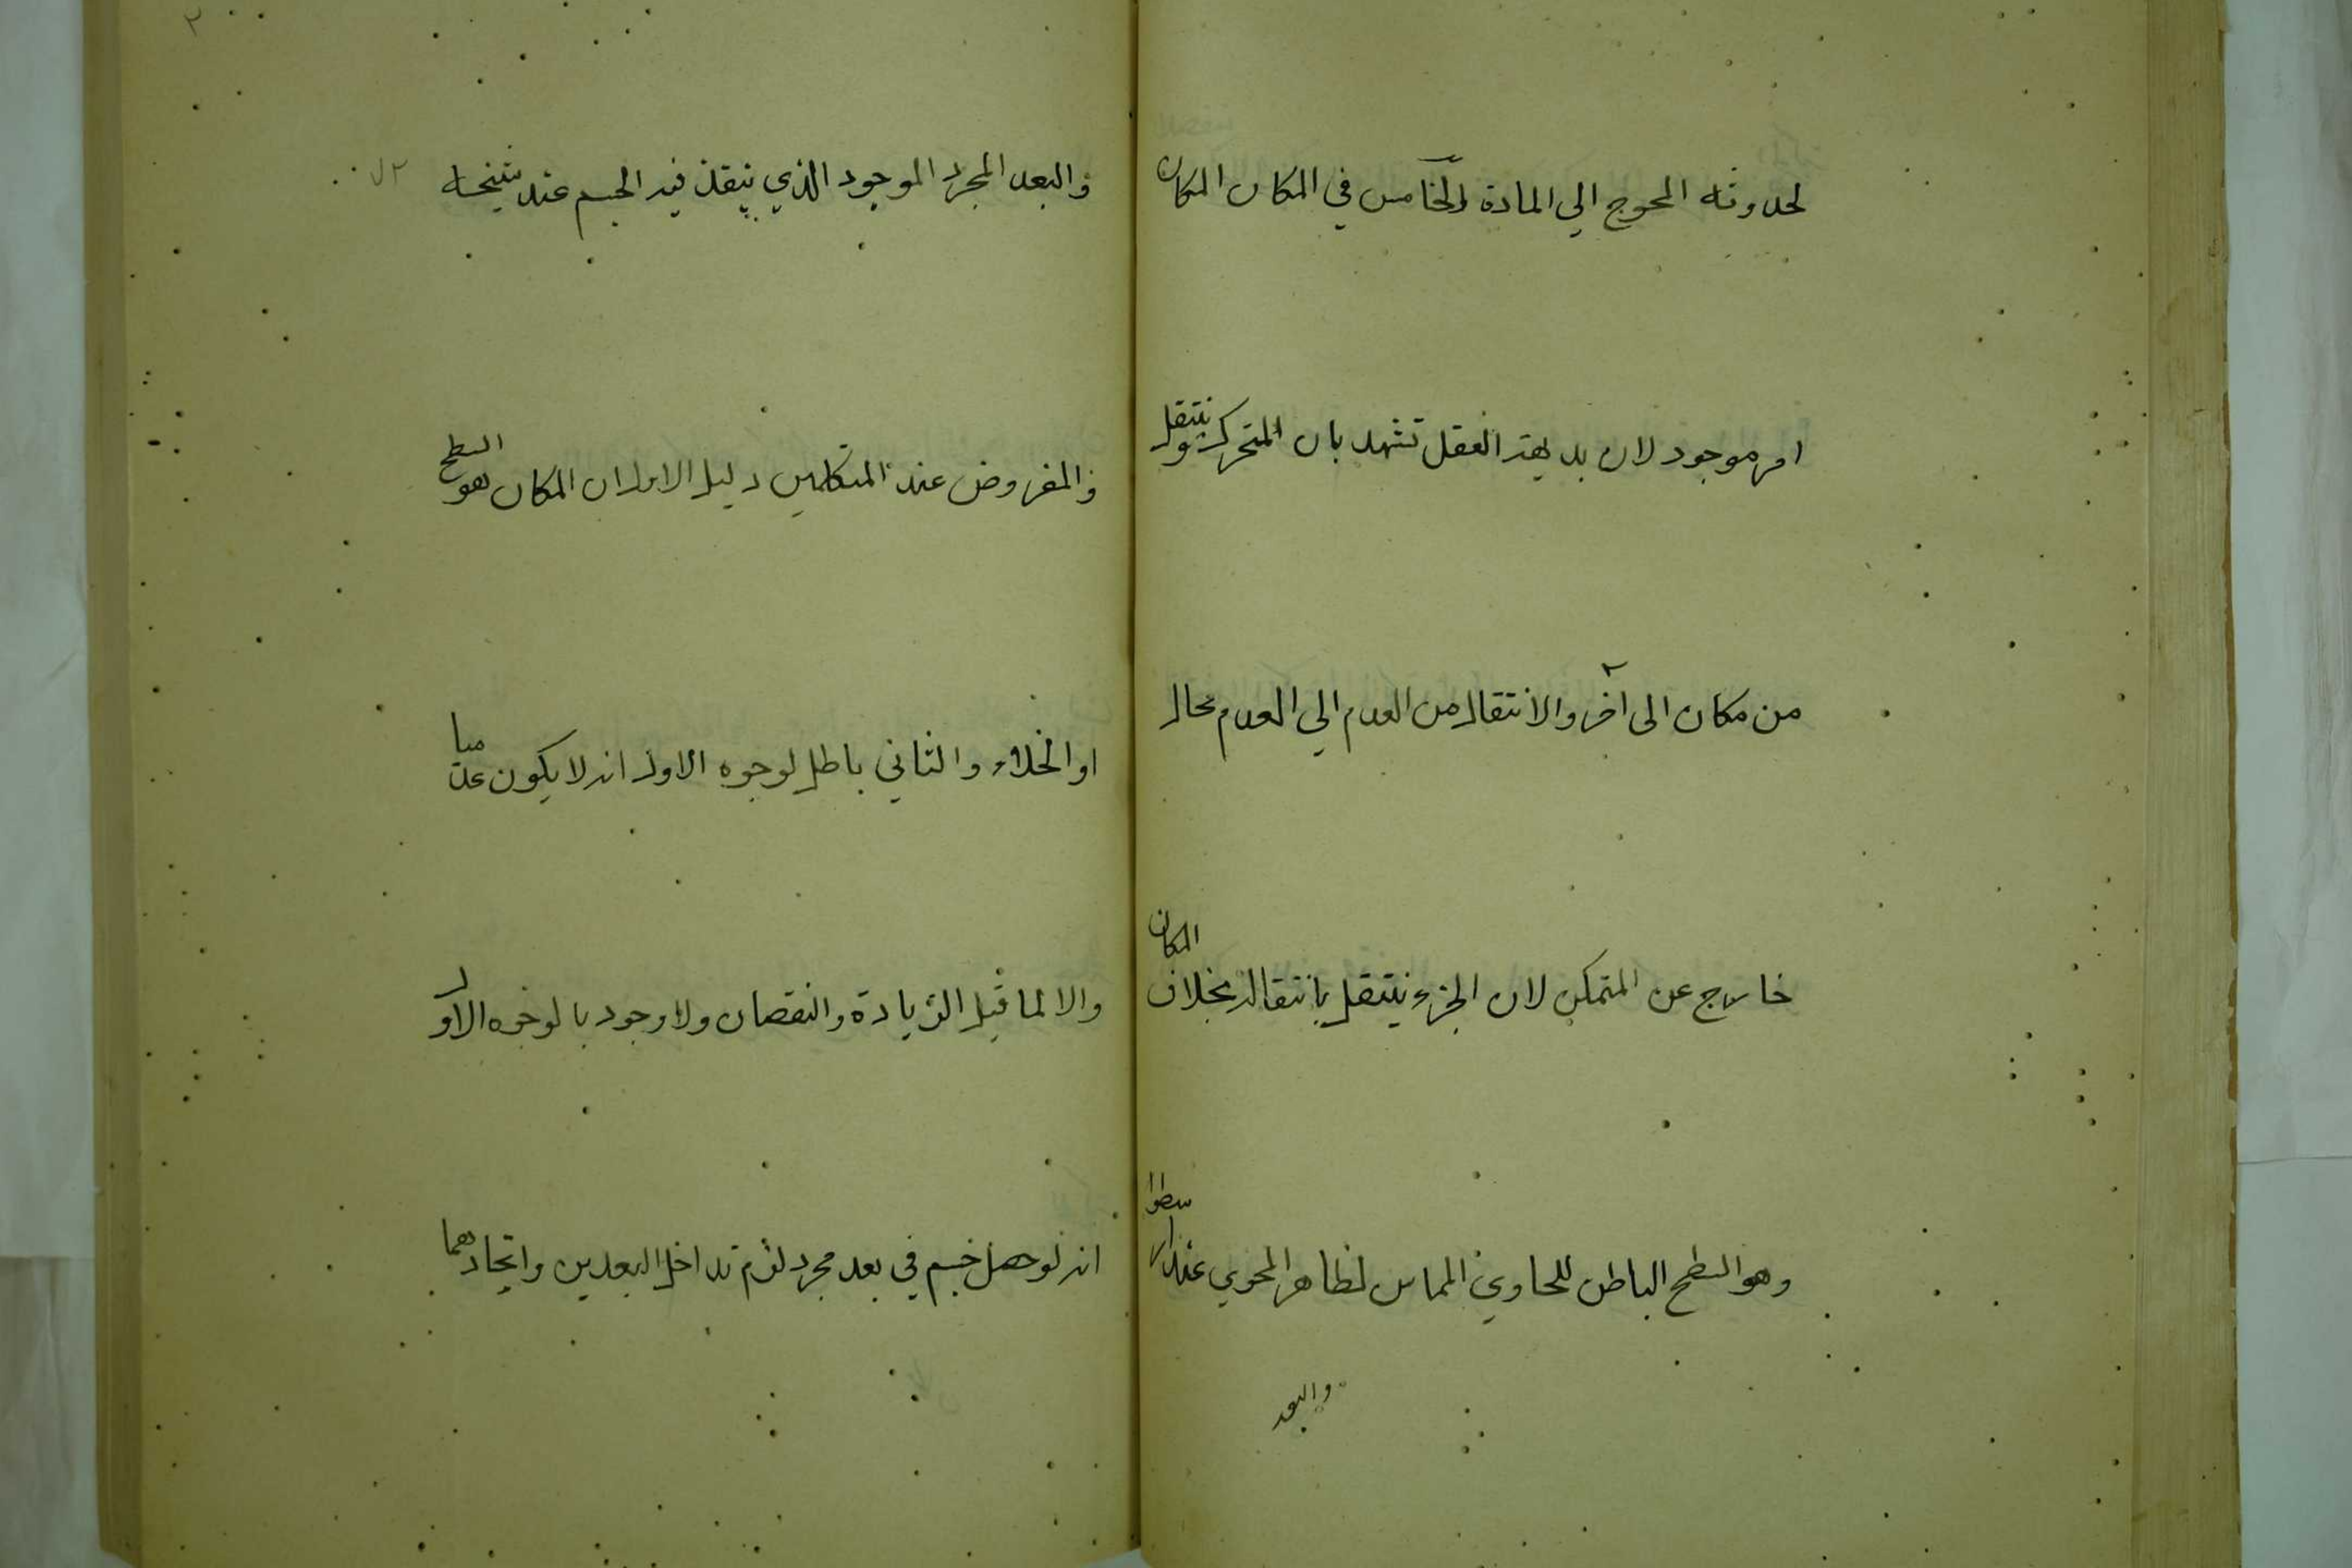 لحدوثه المحوج الي المادة الخامس في المكان المكان
امر موجود لان بديهة العقل تشهد بان المتحرك ينتقل
من مكان الى آخر والانتقال من العدم الي العدم محال
خارج عن المتمكن لان الجزء ينتقل بانتقاله بخلاف المكان
وهو السطح الباطن للحاوي المماس لظاهر المحوي عند ارسطوا
والبعد
والبعد المجرد الموجود الذي ينفذ فيه الجسم عند شيخه
والمفروض عند المتكلمين دليل الاول ان المكان هو السطح
او الخلاء والثاني باطل لوجوه الاول انه لا يكون عدميا
والا لما قبل الزيادة والنقصان ولا وجود بالوجوه الاول
انه لو حصل جسم في بعد مجرد لزم تداخل البعدين واتحادهما